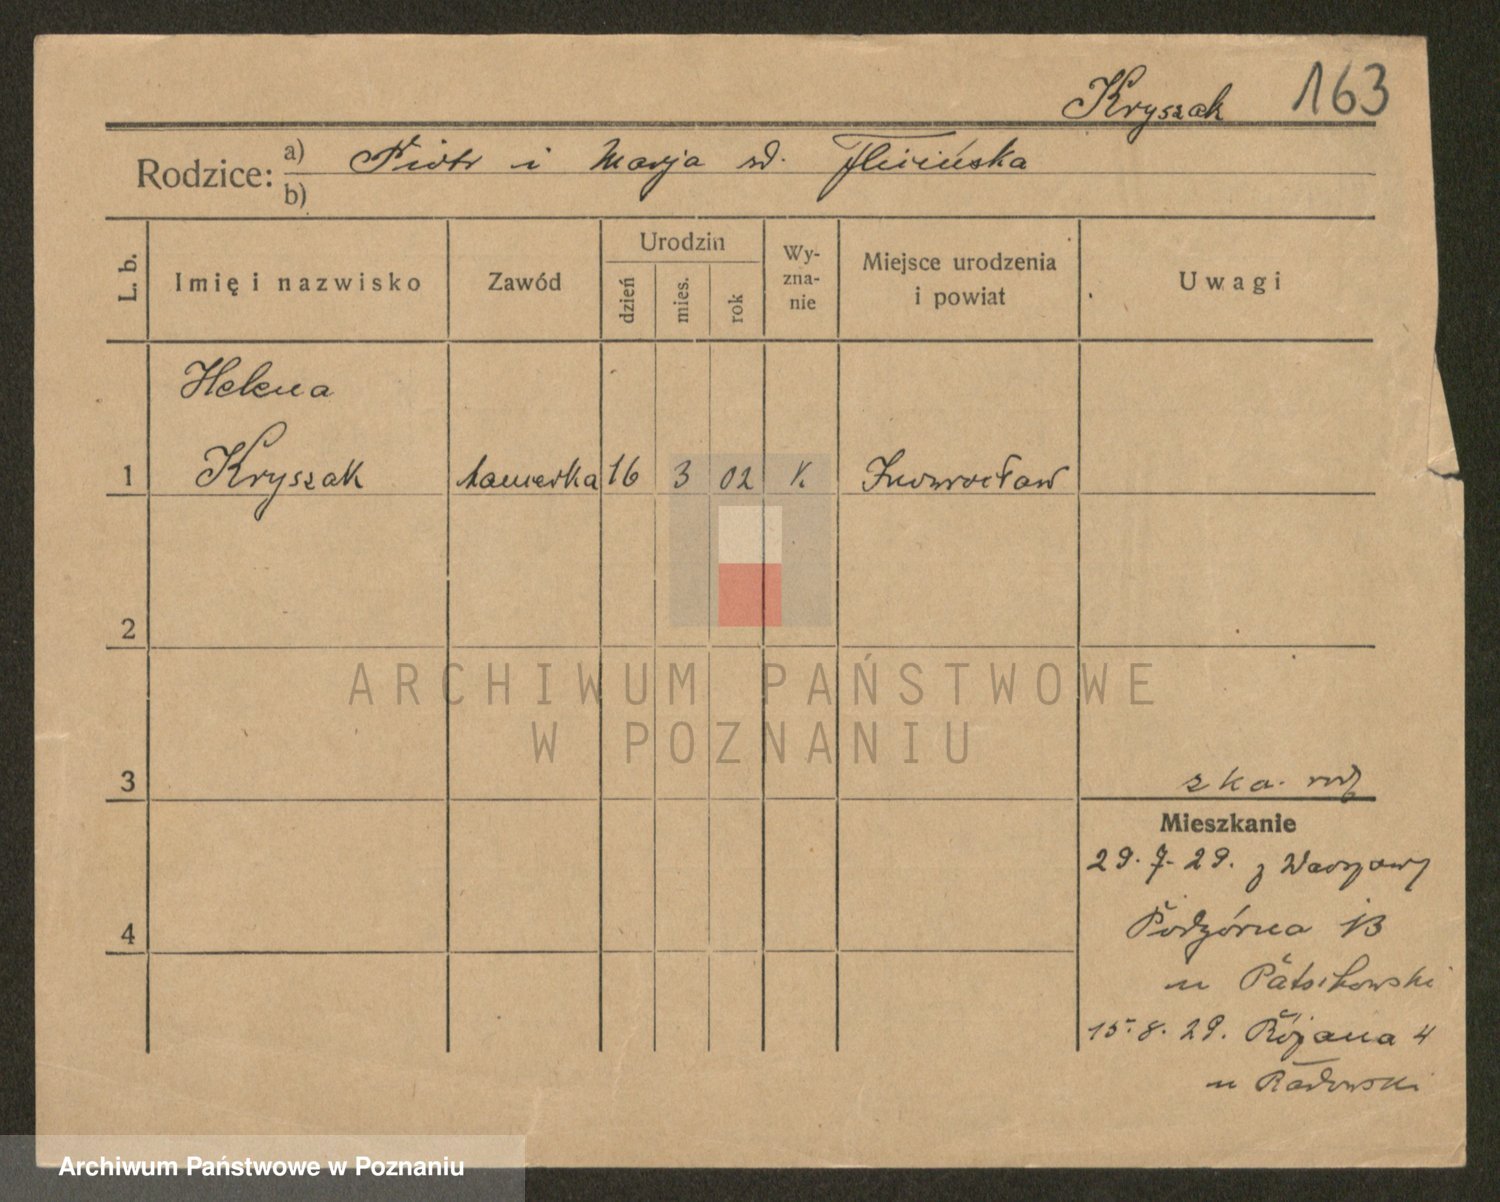 Kryszak 163
Rodzice: a) Piotr i Marja zd.
b)
L. b.
Imię i nazwisko
Zawód
Urodzin
dzień
mies.
rok
Wy-
zna-
nie
Miejsce urodzenia
i powiat
Uwagi
Helena
1 Kryszak 16 3 02 k. Inowrocław
2
ARCHIWUM PAŃSTWOWE
W POZNANIU
3
Mieszkanie
29. 7. 29. z Warszawy
4
Podgórna 13
u
15. 8. 29. Różana 4
u Radowski
Archiwum Państwowe w Poznaniu